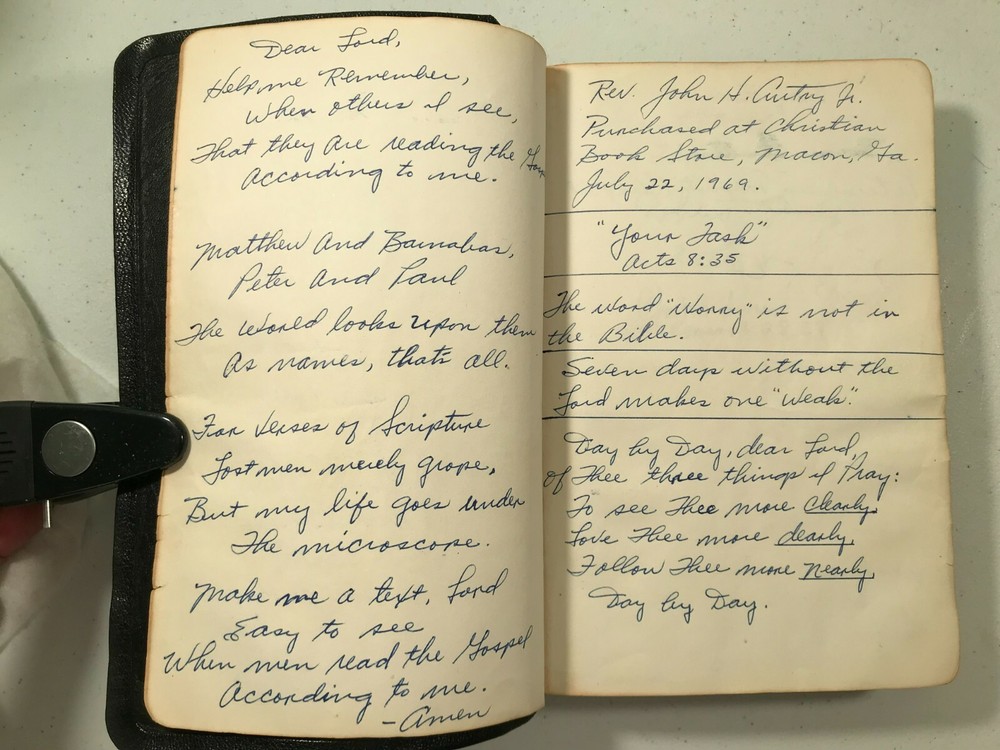 Dear Lord,
Help me Remember,
When others I see,
That they Are reading the
According to me.
Matthew And Barnabas,
Peter And Paul
The World looks upon them
As names, that's all.
For Verses of Scripture
Lost men merely grope,
But my life goes under
The microscope.
Make me a text, Lord
Easy to see
When men read the Gospel
According to me.
-Amen
Rev. John H. Autry Jr.
Purchased at Christian
Book Store, Macon, Ga.
July 22, 1969.
"Your Task"
Acts 8:35
The word "Worry" is not in
the Bible.
Seven days without the
Lord makes one "Weak".
Day by Day, dear Lord,
of Thee three things I Pray:
To see Thee more Clearly,
Love Thee more dearly,
Follow Thee more Nearly,
Day by Day.